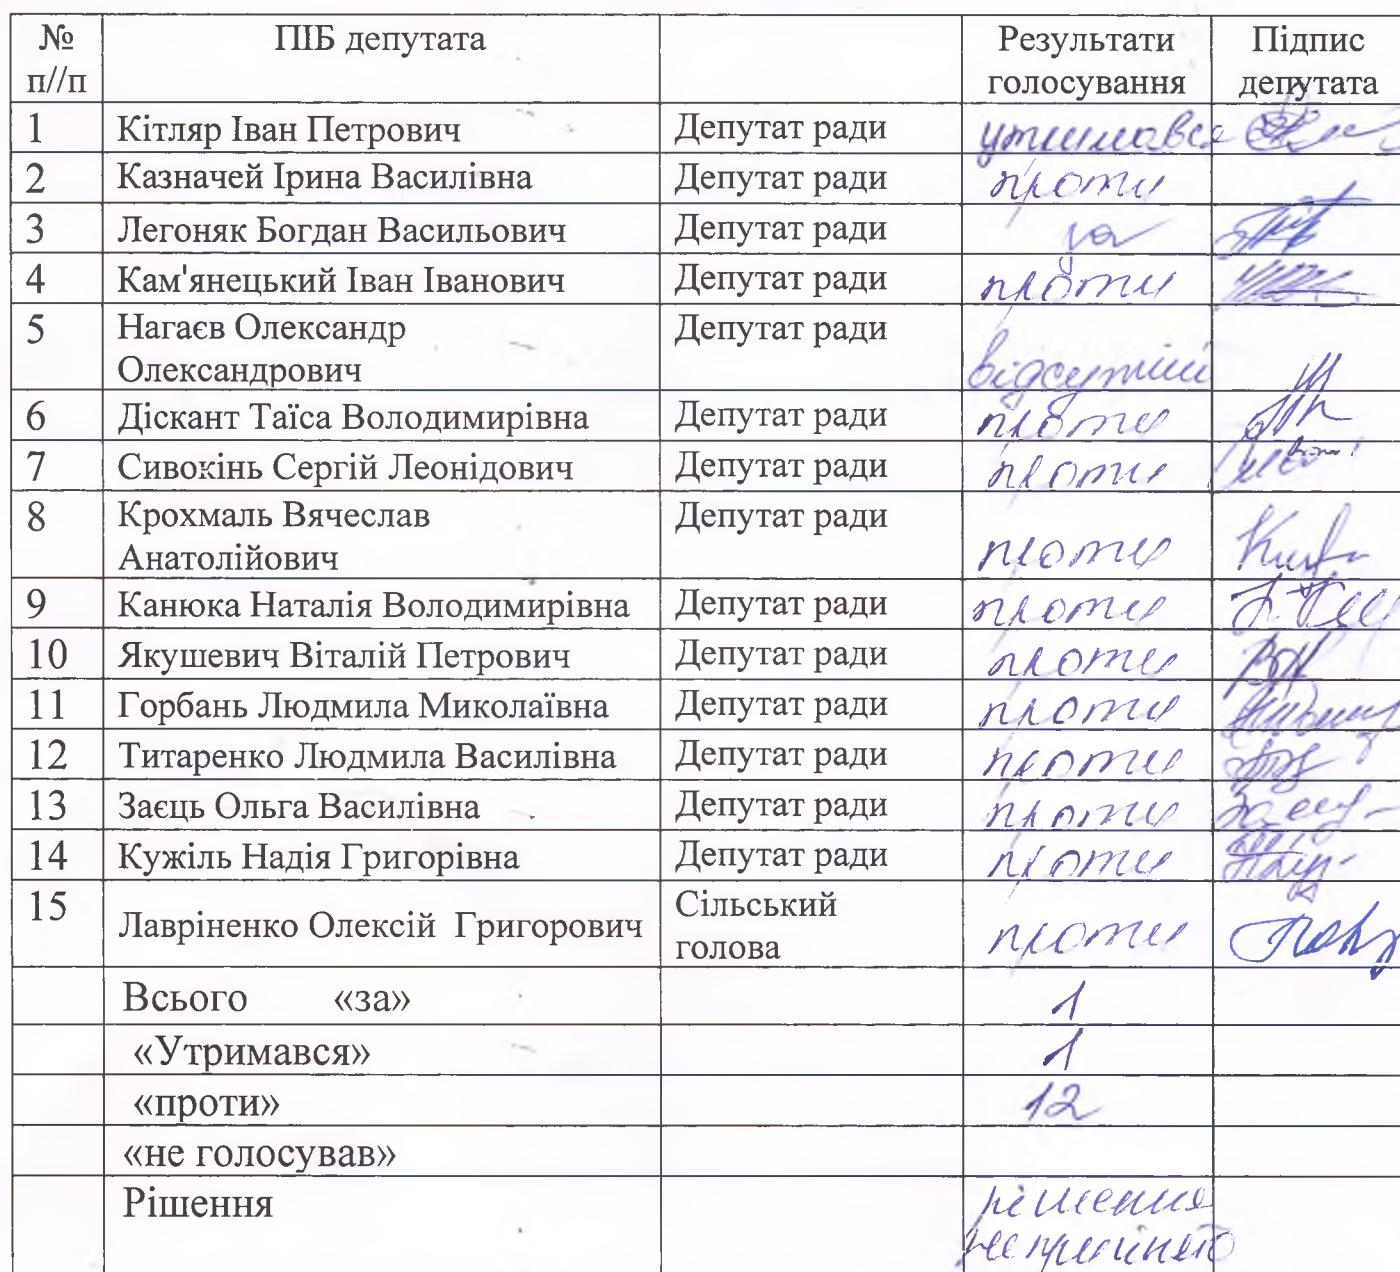 № п//п ПІБ депутата Результати голосування Підпис депутата
1 Кітляр Іван Петрович Депутат ради утримався
2 Казначей Ірина Василівна Депутат ради проти
3 Легоняк Богдан Васильович Депутат ради за
4 Кам'янецький Іван Іванович Депутат ради проти
5 Нагаєв Олександр Олександрович Депутат ради відсутній
6 Діскант Таїса Володимирівна Депутат ради проти
7 Сивокінь Сергій Леонідович Депутат ради проти
8 Крохмаль Вячеслав Анатолійович Депутат ради проти
9 Канюка Наталія Володимирівна Депутат ради проти
10 Якушевич Віталій Петрович Депутат ради проти
11 Горбань Людмила Миколаївна Депутат ради проти
12 Титаренко Людмила Василівна Депутат ради проти
13 Заєць Ольга Василівна Депутат ради проти
14 Кужіль Надія Григорівна Депутат ради проти
15 Лавріненко Олексій Григорович Сільський голова проти
Всього «за» 1
«Утримався» 1
«проти» 12
«не голосував»
Рішення рішення не прийнято